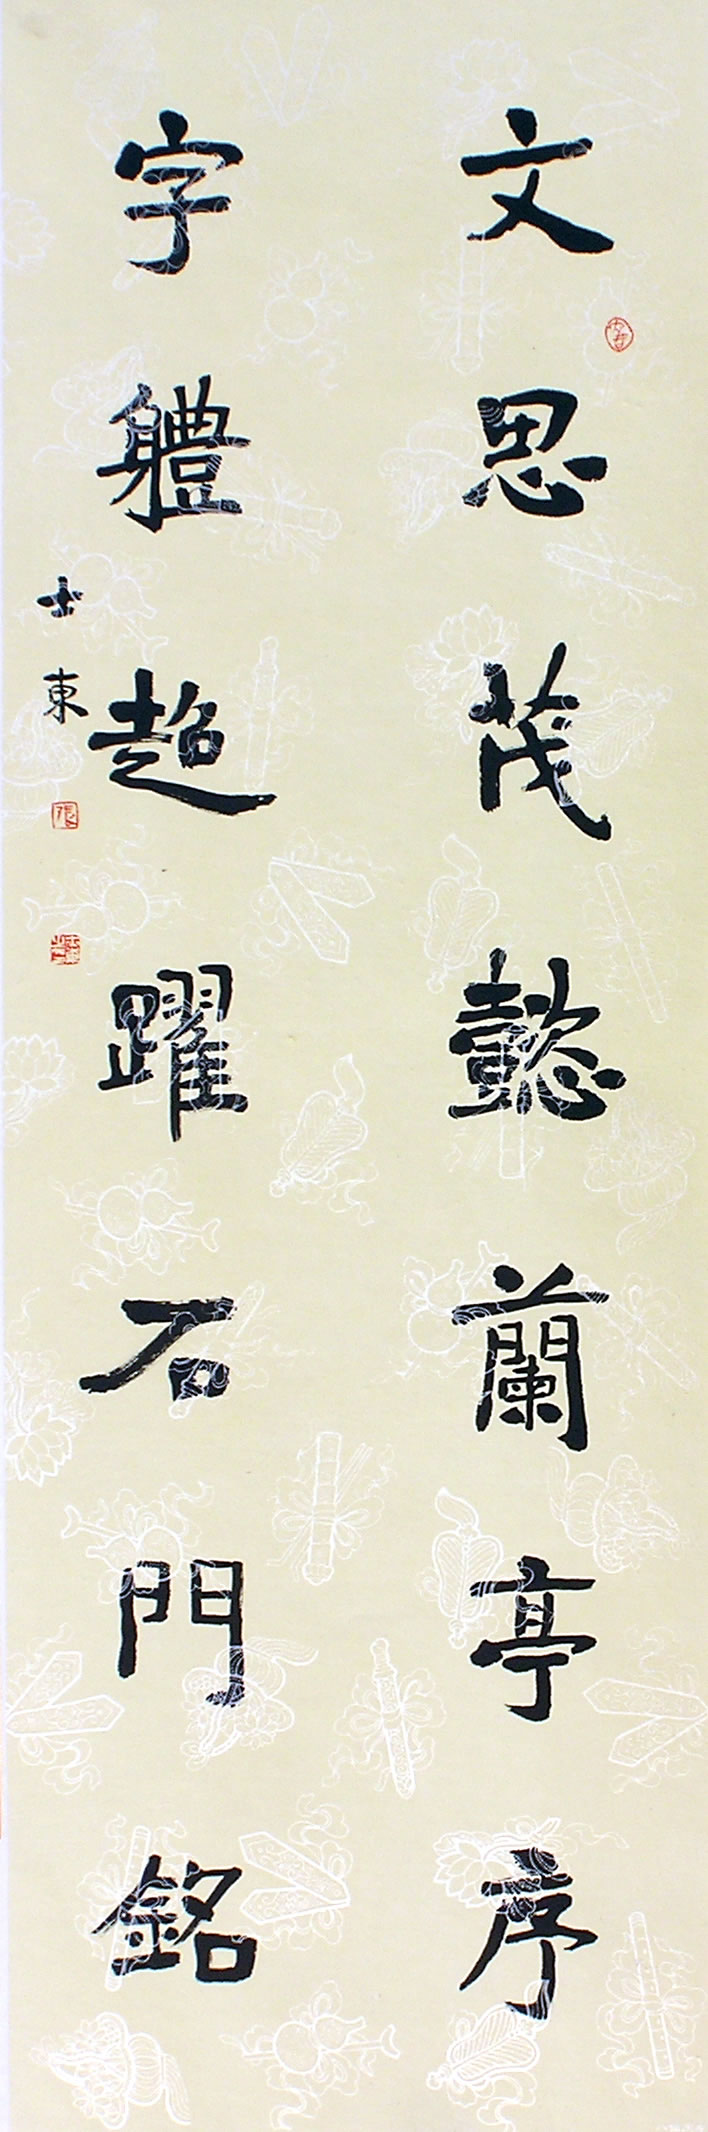 文思茂懿蘭亭序
字軆超躍石門銘
士東